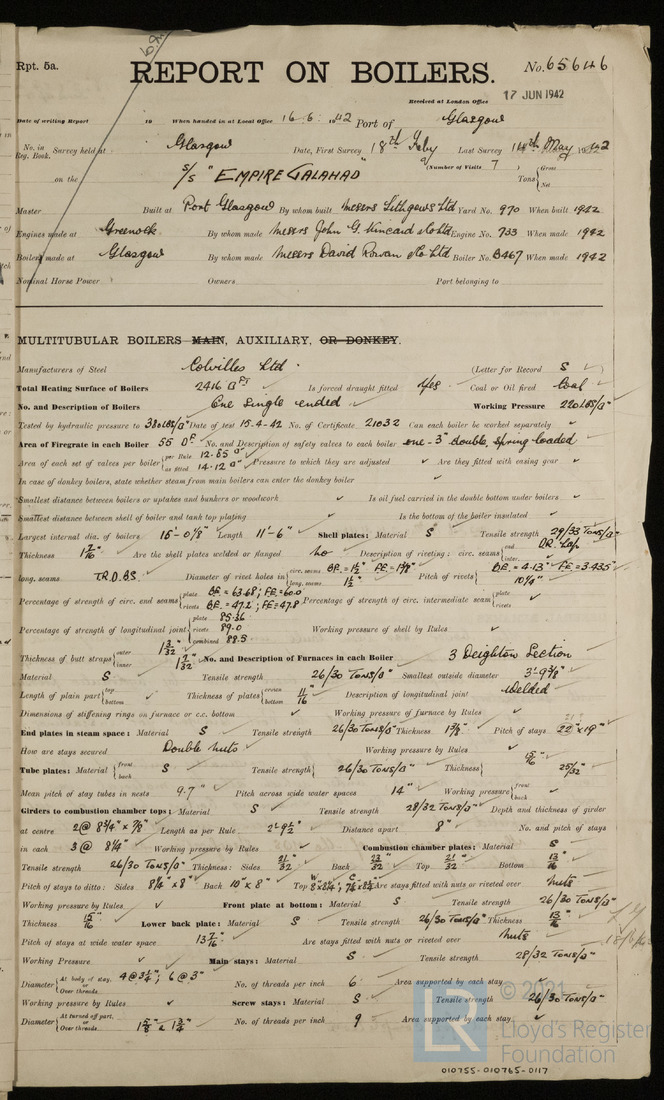 Rpt. 5a.
REPORT ON BOILERS.
No. 65646
Received at London Office
17 JUN 1942
Date of writing Report 19 When handed in at Local Office 16.6. 1942 Port of Glasgow
No. in Reg. Book. Survey held at Glasgow Date, First Survey 18th Feby Last Survey 14th May 1942
on the S/S "EMPIRE GALAHAD" (Number of Visits 7 ) Tons { Gross Net
Master Built at Port Glasgow By whom built Messrs Lithgows Ltd Yard No. 970 When built 1942
Engines made at Greenock By whom made Messrs John G. Kincaid & Co Ltd Engine No. 733 When made 1942
Boilers made at Glasgow By whom made Messrs David Rowan & Co Ltd Boiler No. B467 When made 1942
Nominal Horse Power Owners Port belonging to
MULTITUBULAR BOILERS MAIN, AUXILIARY, OR DONKEY.
Manufacturers of Steel Colvilles Ltd. (Letter for Record S ✓)
Total Heating Surface of Boilers 2416 □ FT ✓ Is forced draught fitted Yes ✓ Coal or Oil fired Coal ✓
No. and Description of Boilers One Single ended ✓ Working Pressure 220 LBS/□"
Tested by hydraulic pressure to 380 LBS/□" Date of test 15-4-42 No. of Certificate 21032 Can each boiler be worked separately ✓
Area of Firegrate in each Boiler 55 □F ✓ No. and Description of safety valves to each boiler one - 3" double, Spring loaded ✓
Area of each set of valves per boiler { per Rule 12.55 □" as fitted 14.12 □" ✓ Pressure to which they are adjusted ✓ Are they fitted with easing gear ✓
In case of donkey boilers, state whether steam from main boilers can enter the donkey boiler ✓
Smallest distance between boilers or uptakes and bunkers or woodwork ✓ Is oil fuel carried in the double bottom under boilers ✓
Smallest distance between shell of boiler and tank top plating ✓ Is the bottom of the boiler insulated ✓
Largest internal dia. of boilers 15'-0 1/8" Length 11'-6" ✓ Shell plates: Material S ✓ Tensile strength 29/33 TONS/□"
Thickness 1 7/16" ✓ Are the shell plates welded or flanged No ✓ Description of riveting: circ. seams { end DR. Lap inter. ✓
long. seams T.R.D.B.S. ✓ Diameter of rivet holes in { circ. seams BE = 1 1/2" FE = 1 3/8" long. seams 1 1/2" Pitch of rivets { BE. = 4.13" FE = 3.435" 10 1/4" ✓
Percentage of strength of circ. end seams { plate BE = 63.68; FE = 60.0 rivets BE. = 47.2; FE = 47.8 Percentage of strength of circ. intermediate seam { plate rivets ✓
Percentage of strength of longitudinal joint { plate 85.36 rivets 89.0 combined 88.5 Working pressure of shell by Rules ✓
Thickness of butt straps { outer 1 3/32" inner 1 7/32" No. and Description of Furnaces in each Boiler 3 Deighton Section ✓
Material S ✓ Tensile strength 26/30 TONS/□" ✓ Smallest outside diameter 3'-9 3/8" ✓
Length of plain part { top bottom ✓ Thickness of plates { crown bottom 11/16" ✓ Description of longitudinal joint Welded ✓
Dimensions of stiffening rings on furnace or c.c. bottom ✓ Working pressure of furnace by Rules ✓
End plates in steam space: Material S ✓ Tensile strength 26/30 TONS/□" Thickness 1 3/8" ✓ Pitch of stays 22" x 19" ✓
How are stays secured Double Nuts ✓ Working pressure by Rules ✓
Tube plates: Material { front back S ✓ Tensile strength { 26/30 TONS/□" ✓ Thickness { 15/16" 25/32" ✓
Mean pitch of stay tubes in nests 9.7" ✓ Pitch across wide water spaces 14" ✓ Working pressure { front back ✓
Girders to combustion chamber tops: Material S ✓ Tensile strength 28/32 TONS/□" ✓ Depth and thickness of girder
at centre 2 @ 8 3/4" x 7/8" ✓ Length as per Rule 2'-9 1/2" ✓ Distance apart 8" ✓ No. and pitch of stays
in each 3 @ 8 1/4" ✓ Working pressure by Rules ✓ Combustion chamber plates: Material S ✓
Tensile strength 26/30 TONS/□" ✓ Thickness: Sides 21/32" ✓ Back 23/32" ✓ Top 21/32" ✓ Bottom 13/16" ✓
Pitch of stays to ditto: Sides 8 1/4" x 8" Back 10" x 8" ✓ Top Are stays fitted with nuts or riveted over Nuts ✓
Working pressure by Rules ✓ Front plate at bottom: Material S ✓ Tensile strength 26/30 TONS/□"
Thickness 15/16" ✓ Lower back plate: Material S ✓ Tensile strength 26/30 TONS/□" Thickness 13/16" ✓
Pitch of stays at wide water space 13 7/16" ✓ Are stays fitted with nuts or riveted over Nuts ✓
Working Pressure ✓ Main stays: Material S ✓ Tensile strength 28/32 TONS/□" ✓
Diameter { At body of stay, or Over threads. 4 @ 3 1/4"; 6 @ 3" No. of threads per inch 6 ✓ Area supported by each stay ✓
Working pressure by Rules ✓ Screw stays: Material S ✓ Tensile strength 26/30 TONS/□" ✓
Diameter { At turned off part, or Over threads. 1 5/8" & 1 3/4" No. of threads per inch 9 ✓ Area supported by each stay ✓
© 2021
LR
Lloyd's Register
Foundation
010755-010765-0117